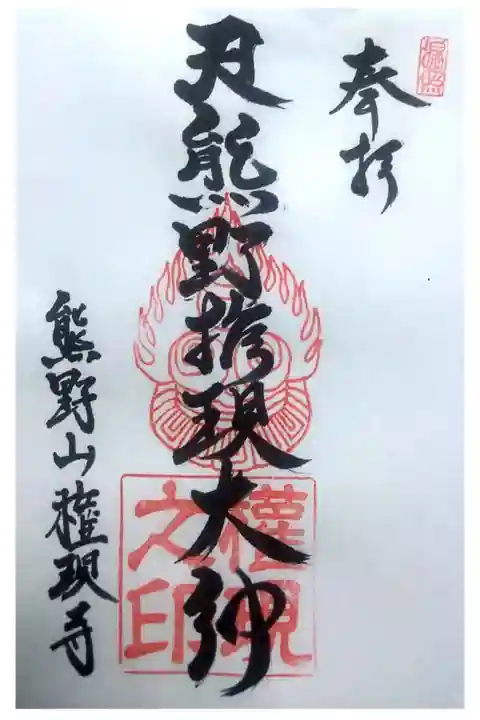 奉拝
熊野権現大神
熊野山権現寺
權現之印